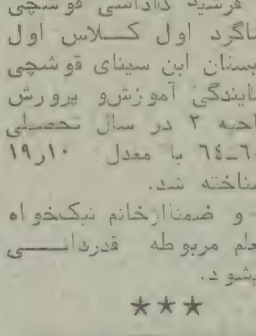 فرشید داداشی قوشچی
شاگرد اول کلاس اول
دبستان ابن سینای قوشچی
نمایندگی آموزش و پرورش
ناحیه ۲ در سال تحصیلی
۶۴-۶ با معدل ۱۹٫۱۰
شناخته شد.
و ضمناً از خانم نیکخواه
معلم مربوطه قدردانی
میشود.
★★★